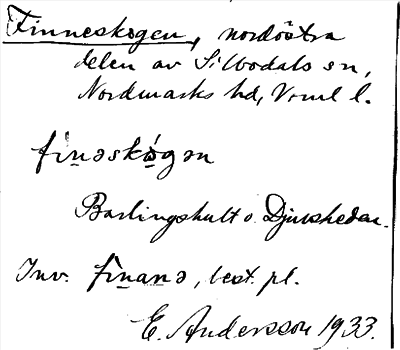 Finneskogen, nordöstra
delen av Silbodals sn,
Nordmarks hd, Vrml l.
finəskógən
Barlingshult o. Djuvshedar.
Inv. finanə, best. pl.
E. Andersson 1933.